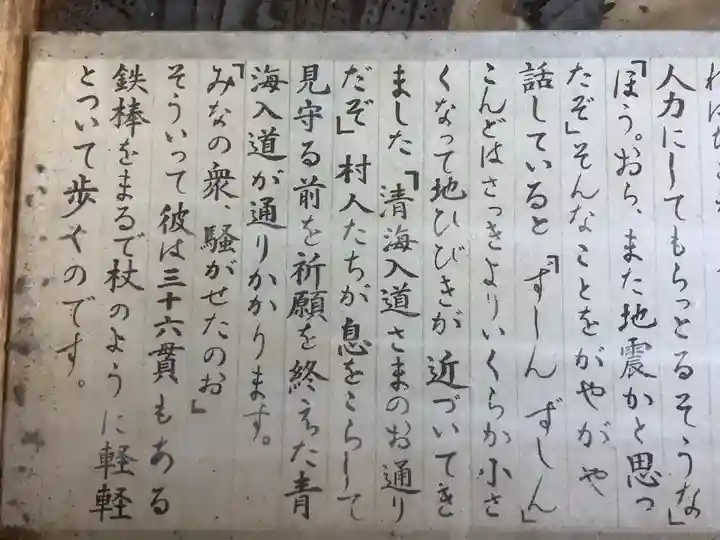 人力にしてもらっとるそうな」
「ほう。おら、また地震かと思っ
たぞ」そんなことをがやがや
話していると「ずしん ずしん」
こんどはさっきよりいくらか小さ
くなって地ひびきが近づいてき
ました「清海入道さまのお通り
だぞ」村人たちが息をこらして
見守る前を祈願を終えた青
海入道が通りかかります。
「みなの衆、騒がせたのお」
そういって彼は三十六貫もある
鉄棒をまるで杖のように軽軽
とついて歩くのです。